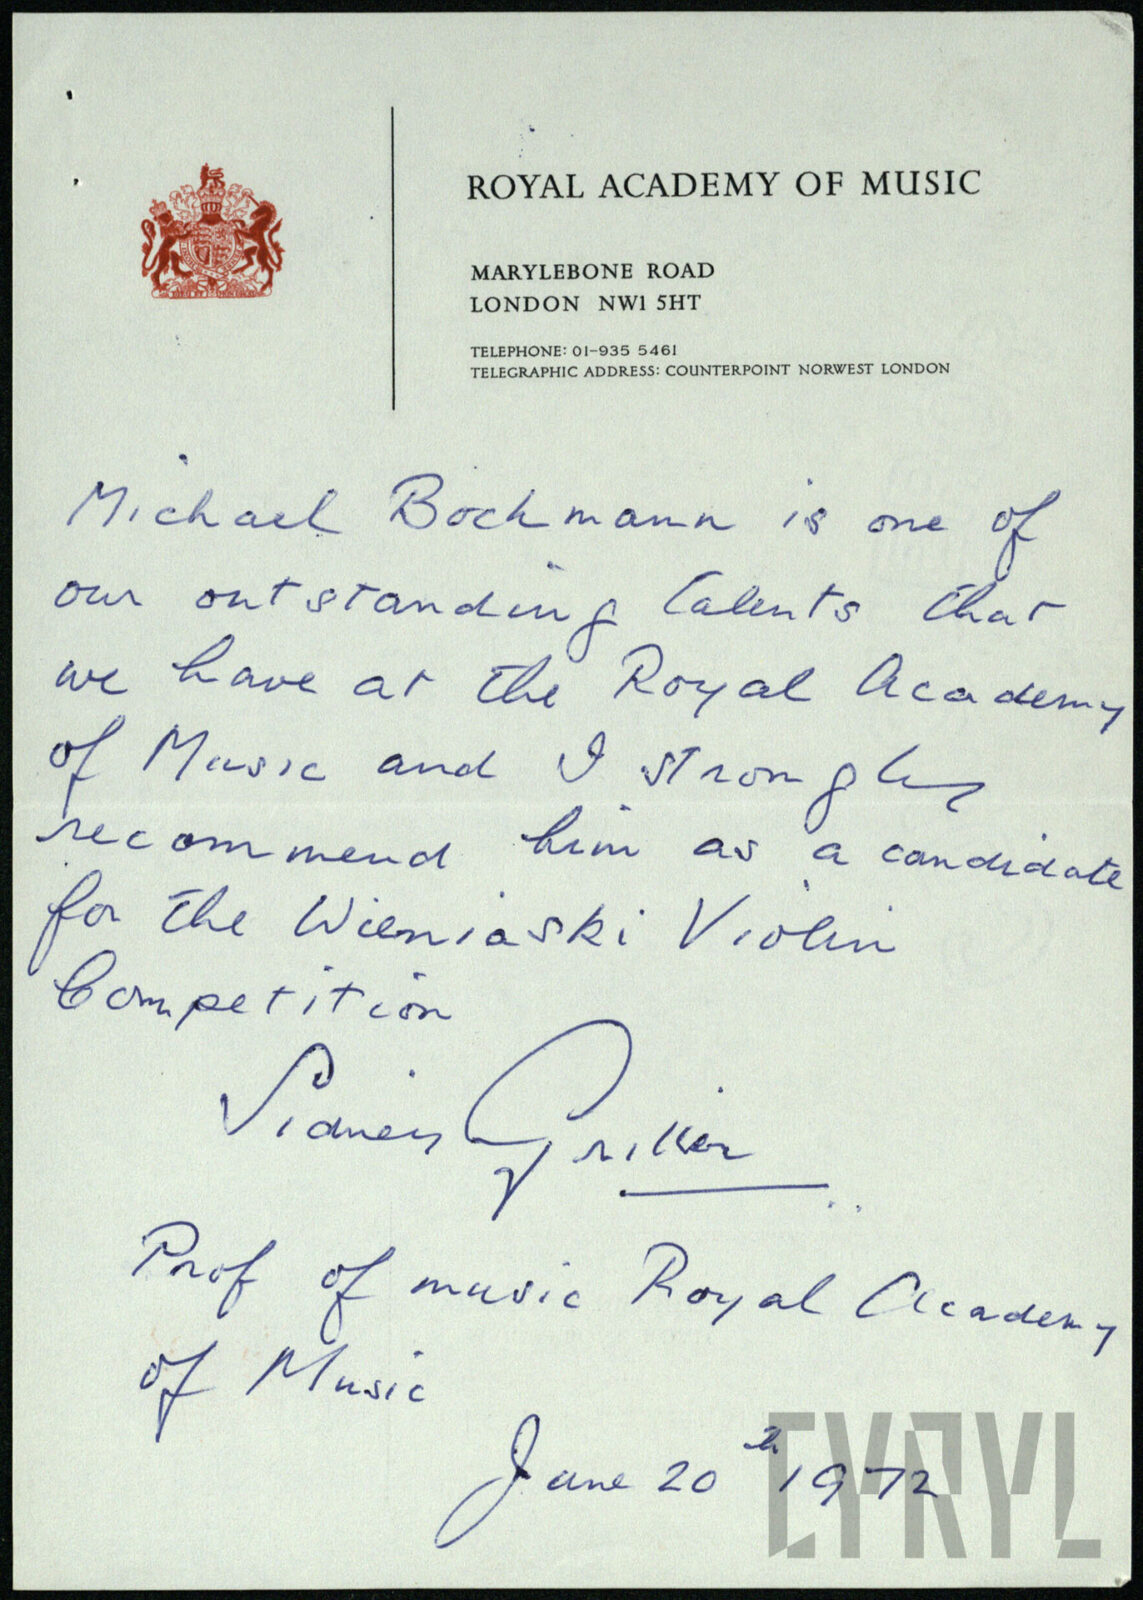 ROYAL ACADEMY OF MUSIC
MARYLEBONE ROAD
LONDON NW1 5HT
TELEPHONE: 01-935 5461
TELEGRAPHIC ADDRESS: COUNTERPOINT NORWEST LONDON
Michael Bochmann is one of
our outstanding talents that
we have at the Royal Academy
of Music and I strongly
recommend him as a candidate
for the Wieniaski Violin
Competition
Sidney Griller
Prof of music Royal Academy
of Music
June 20th 1972
CYRYL